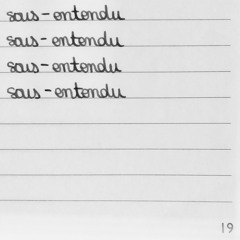 sous-entendu
sous-entendu
sous-entendu
sous-entendu
19